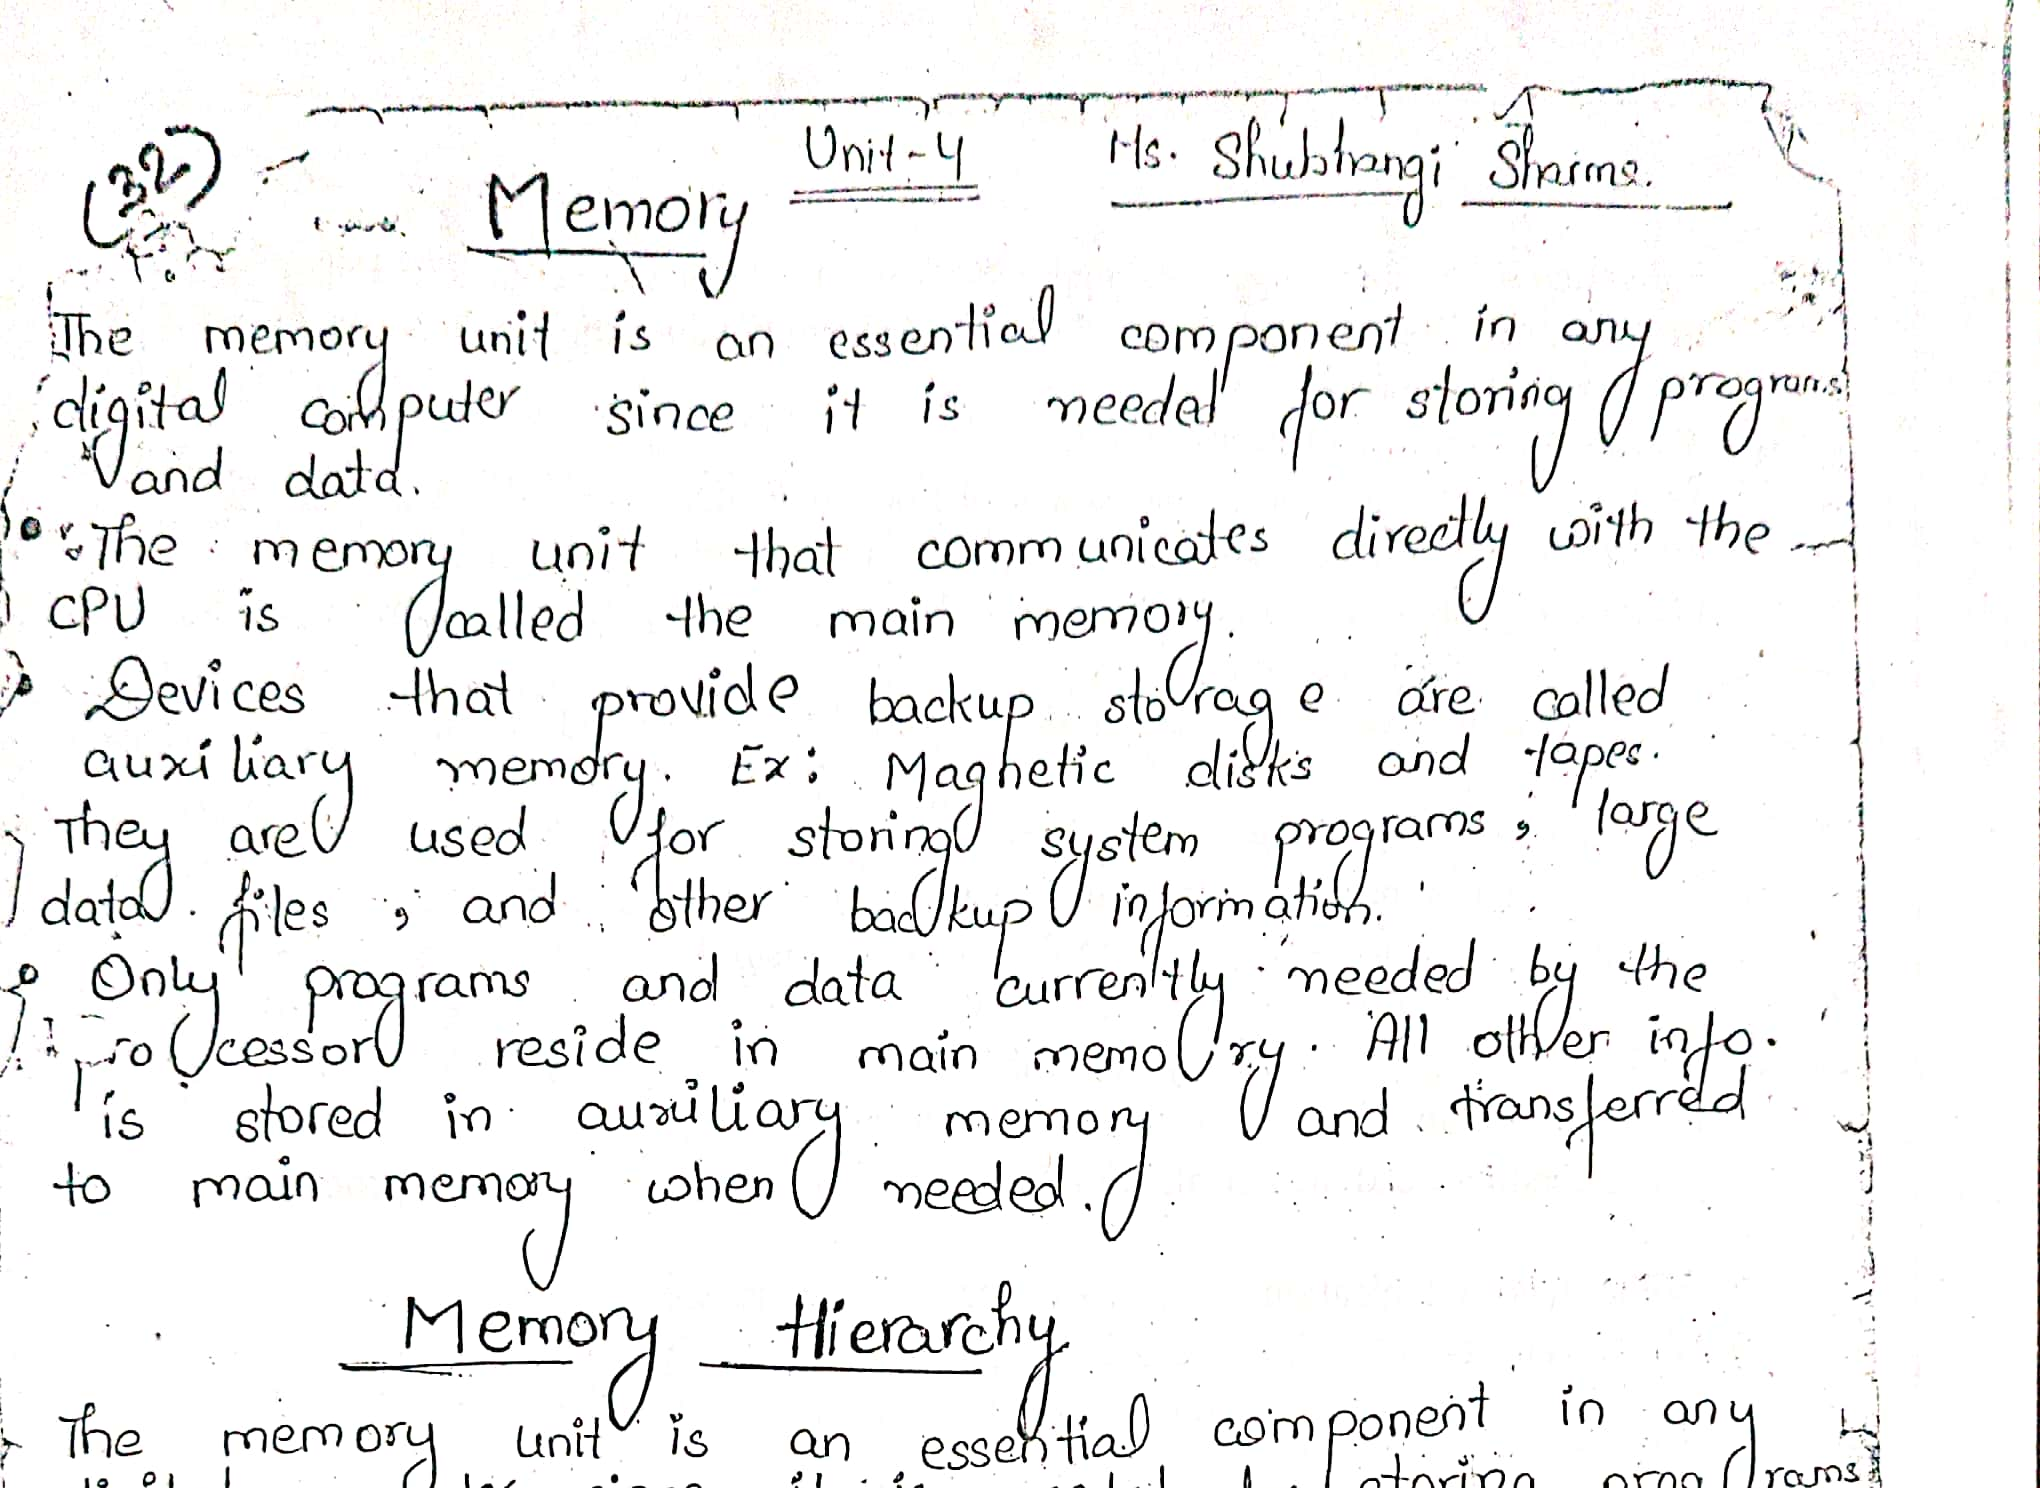 (32)
Unit-4 Ms. Shubhangi Sharma.
Memory
The memory unit is an essential component in any
digital computer since it is needed for storing programs
and data.
The memory unit that communicates directly with the
CPU is called the main memory.
Devices that provide backup storage are called
auxiliary memory. Ex: Magnetic disks and tapes.
They are used for storing system programs, large
data files, and other backup information.
Only programs and data currently needed by the
processor reside in main memory. All other info.
is stored in auxiliary memory and transferred
to main memory when needed.
Memory Hierarchy
The memory unit is an essential component in any
storing programs